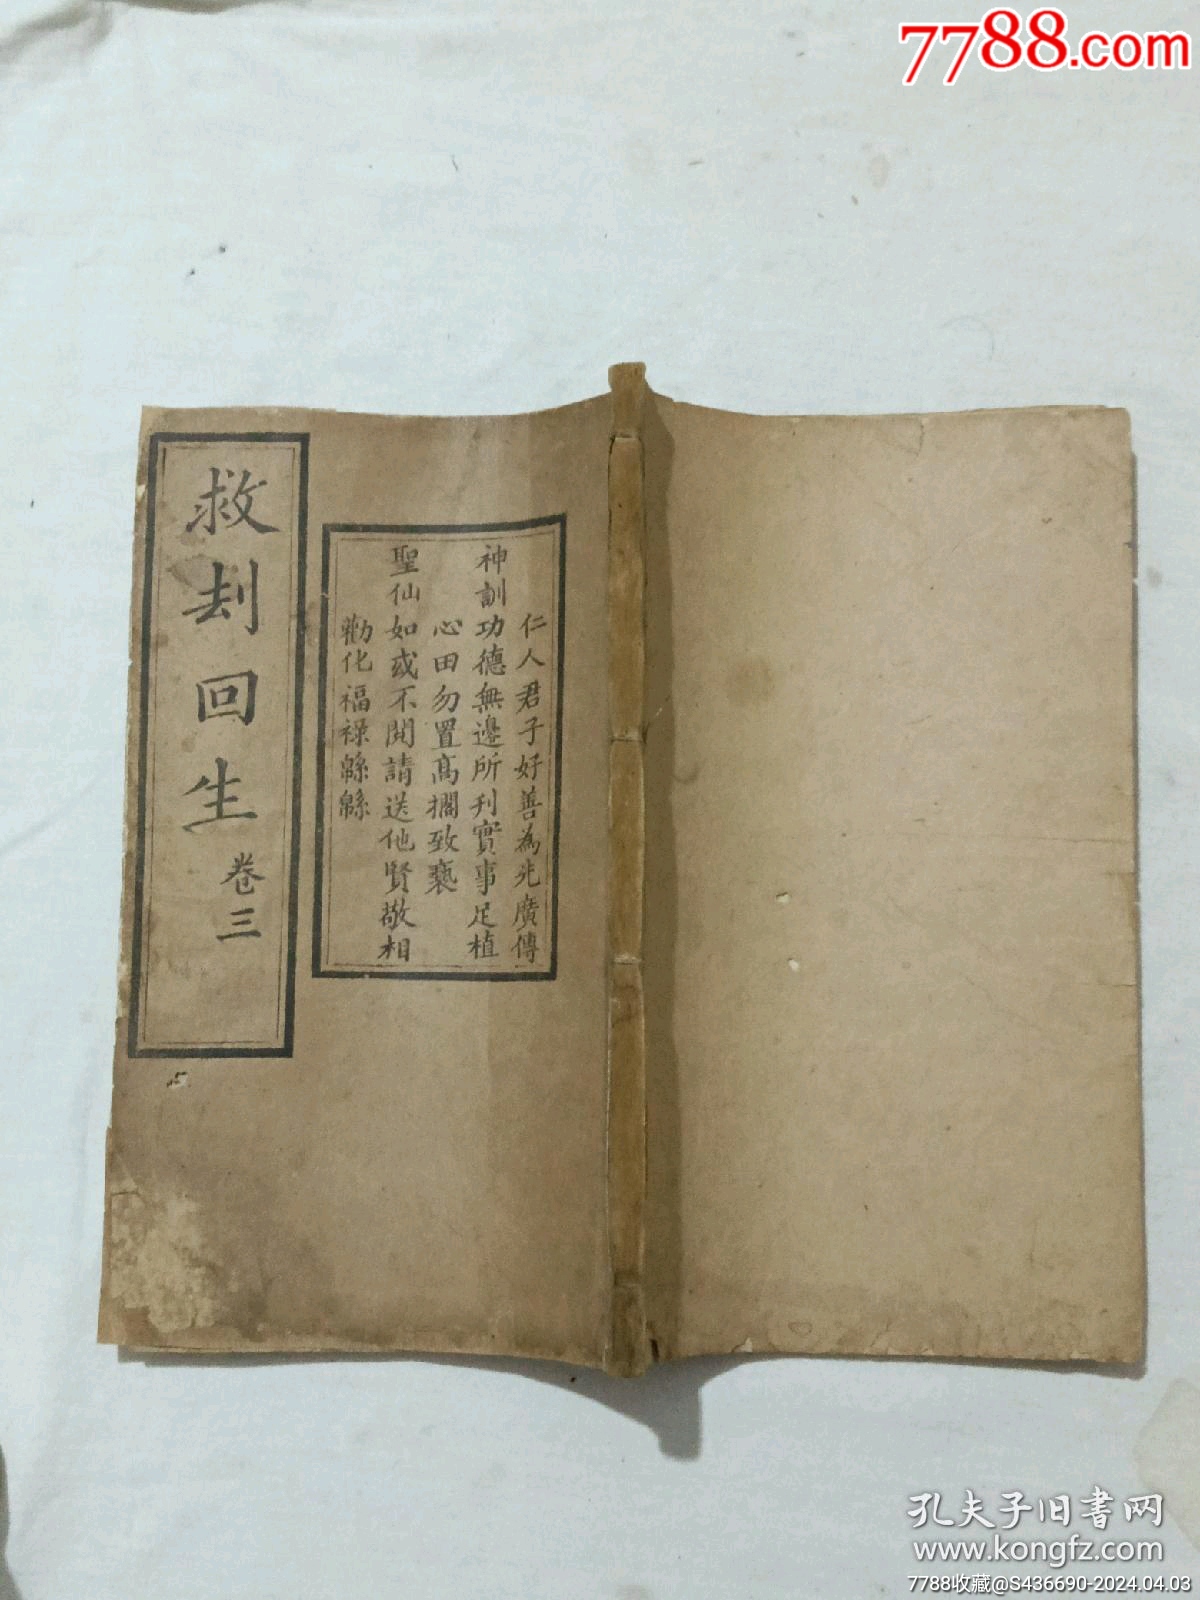 7788.com
救刦回生
卷三
仁人君子好善為先廣傳
神訓功德無邊所刋實事足植
心田勿置高擱致褻
聖仙如或不閱請送他賢敬相
勸化福祿緜緜
孔夫子旧书网
www.kongfz.com
7788收藏@S436690-2024.04.03